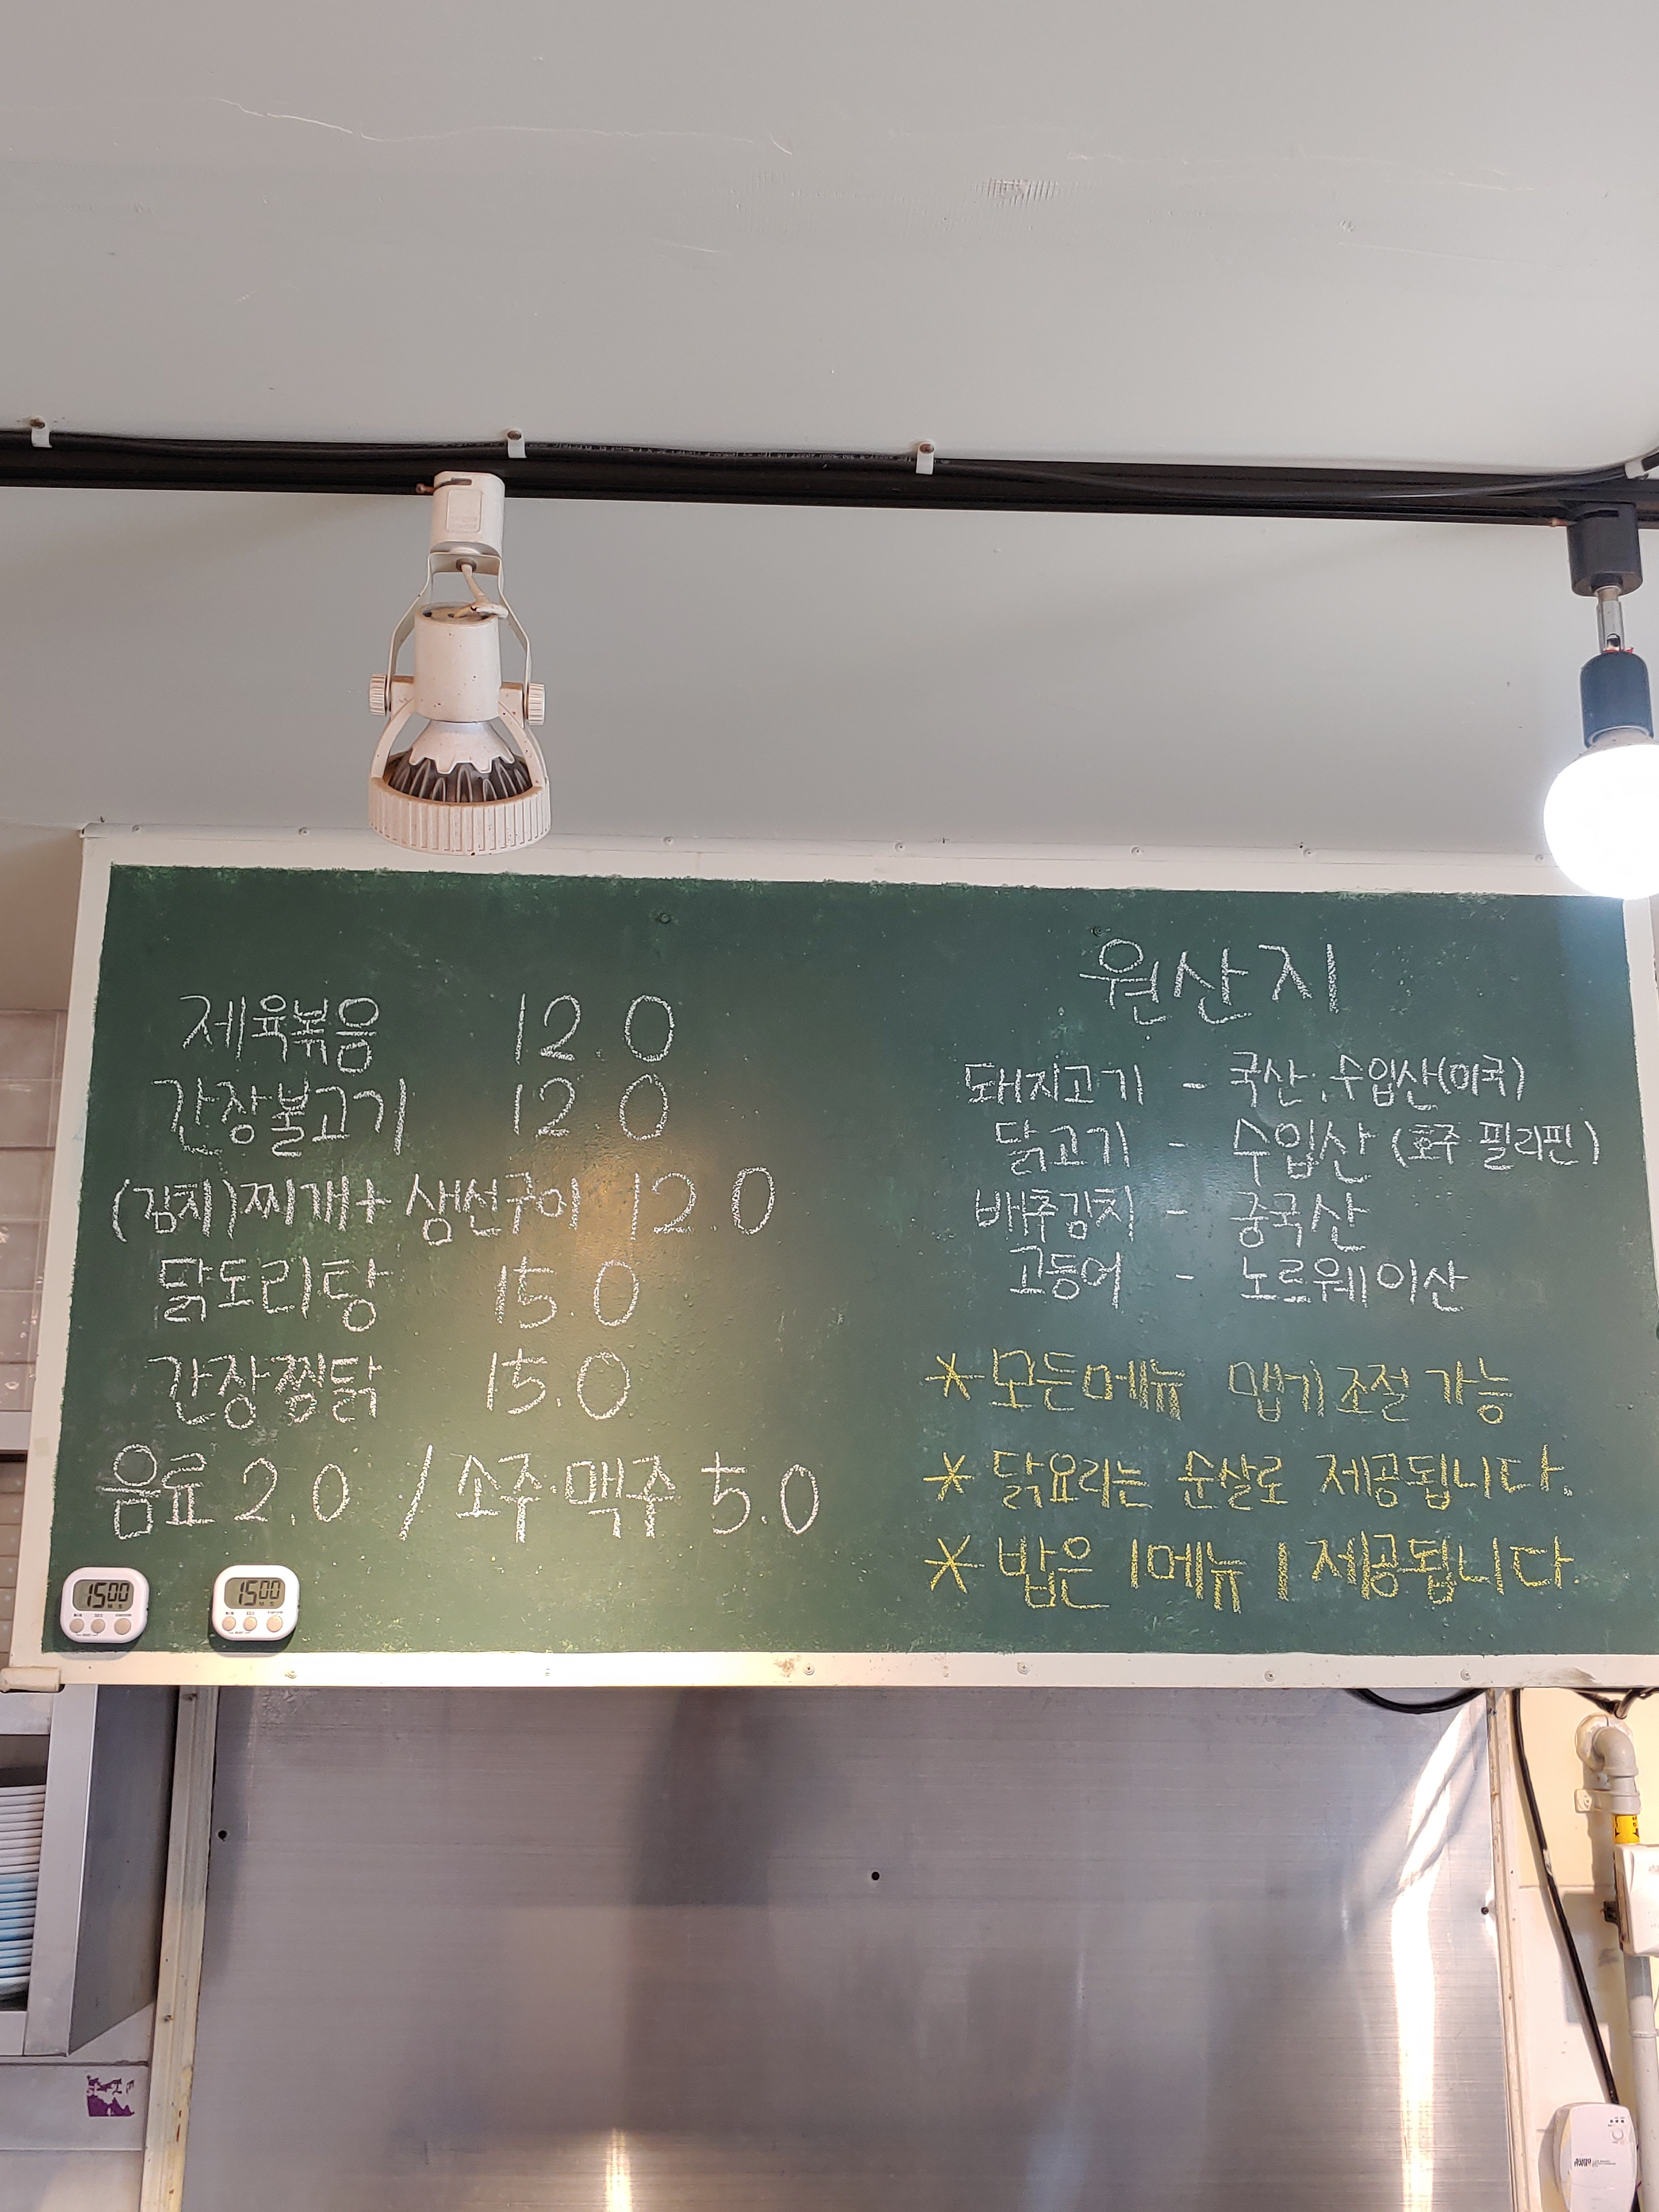 제육볶음 12 0
간장불고기 12 0
(김치)찌개+ 생선구이 12.0
닭도리탕 15.0
간장찜닭 15.0
음료 2.0 / 소주.맥주 5.0
15 00
15 00
원산지
돼지고기 - 국산.수입산(미국)
닭고기 - 수입산 (호주 필리핀)
배추김치 - 중국산
고등어 - 노르웨이산
* 모든메뉴 맵기조절 가능
* 닭요리는 순살로 제공됩니다.
* 밥은 1메뉴 1 제공됩니다.